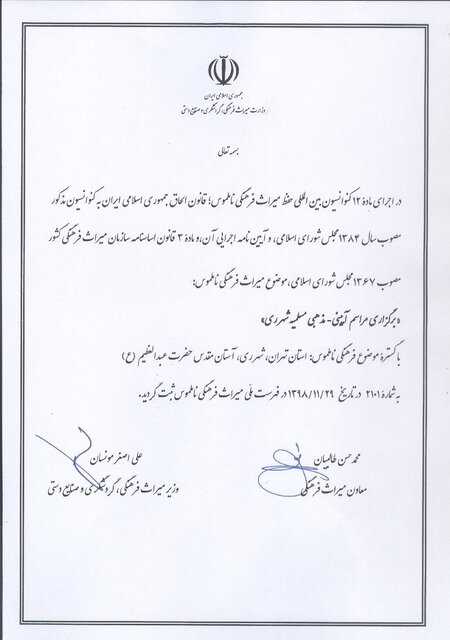 جمهوری اسلامی ایران
وزارت میراث فرهنگی، گردشگری و صنایع دستی
بسمه تعالی
در اجرای مادهٔ ۱۲ کنوانسیون بین المللی حفظ میراث فرهنگی ناملموس؛ قانون الحاق جمهوری اسلامی ایران به کنوانسیون مذکور
مصوب سال ۱۳۸۴ مجلس شورای اسلامی، و آیین نامه اجرایی آن، و مادهٔ ۳ قانون اساسنامه سازمان میراث فرهنگی کشور
مصوب ۱۳۶۷ مجلس شورای اسلامی، موضوع میراث فرهنگی ناملموس:
«برگزاری مراسم آیینی- مذهبی مسلمیه شهر ری»
با گسترهٔ موضوع فرهنگی ناملموس: استان تهران، شهر ری، آستان مقدس حضرت عبدالعظیم (ع)
به شمارهٔ ۲۱۰۱ در تاریخ ۱۳۹۸/۱۱/۲۹ در فهرست ملّی میراث فرهنگی ناملموس ثبت گردید.
محمدحسن طالبیان
معاون میراث فرهنگی
علی اصغر مونسان
وزیر میراث فرهنگی، گردشگری و صنایع دستی